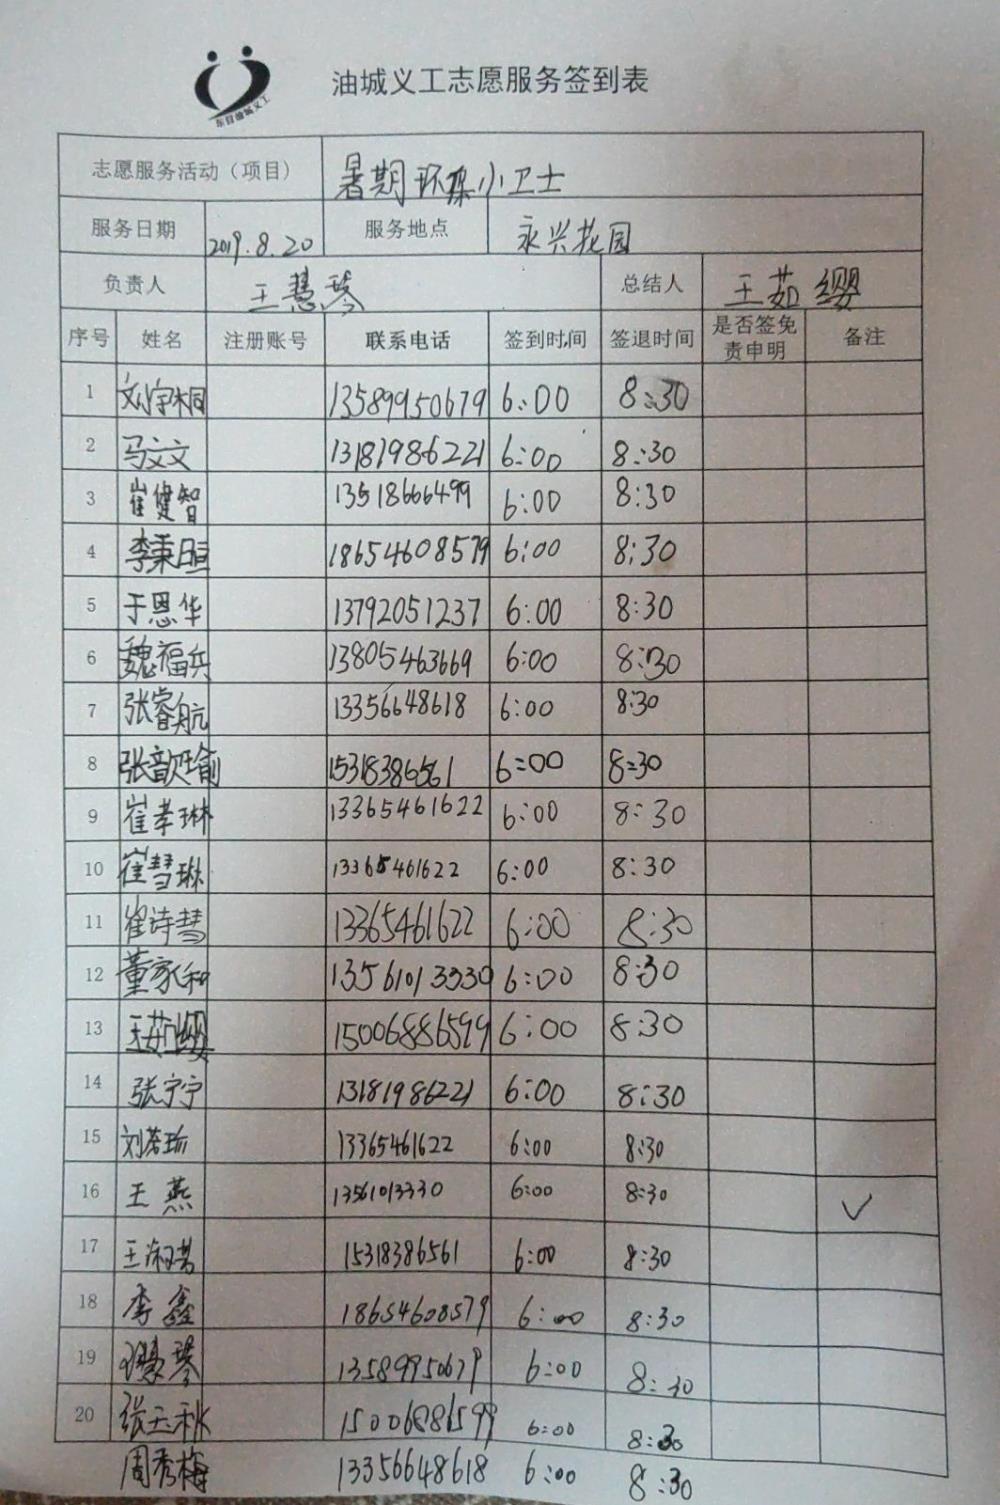 东营油城义工
油城义工志愿服务签到表
志愿服务活动（项目） 暑期环保小卫士
服务日期 2019.8.20 服务地点 永兴花园
负责人 王慧琴 总结人 王茹缨
序号 姓名 注册账号 联系电话 签到时间 签退时间 是否签免责申明 备注
1 刘宇桐 13589950679 6:00 8:30
2 马文文 13181986221 6:00 8:30
3 崔健智 13518666499 6:00 8:30
4 李秉暄 18654608579 6:00 8:30
5 于恩华 13792051237 6:00 8:30
6 魏福兵 13805463669 6:00 8:30
7 张睿航 13356648618 6:00 8:30
8 张歆瑜 15318386561 6:00 8:30
9 崔孝琳 13365461622 6:00 8:30
10 崔彗琳 13365461622 6:00 8:30
11 崔诗彗 13365461622 6:00 8:30
12 董家和 13561013330 6:00 8:30
13 王茹缨 15006886599 6:00 8:30
14 张宁宁 13181986221 6:00 8:30
15 刘 13365461622 6:00 8:30
16 王燕 13561013330 6:00 8:30 ✓
17 王淑芳 15318386561 6:00 8:30
18 李鑫 18654608579 6:00 8:30
19 王慧琴 13589950679 6:00 8:30
20 张玉秋 15006886599 6:00 8:30
周秀梅 13356648618 6:00 8:30